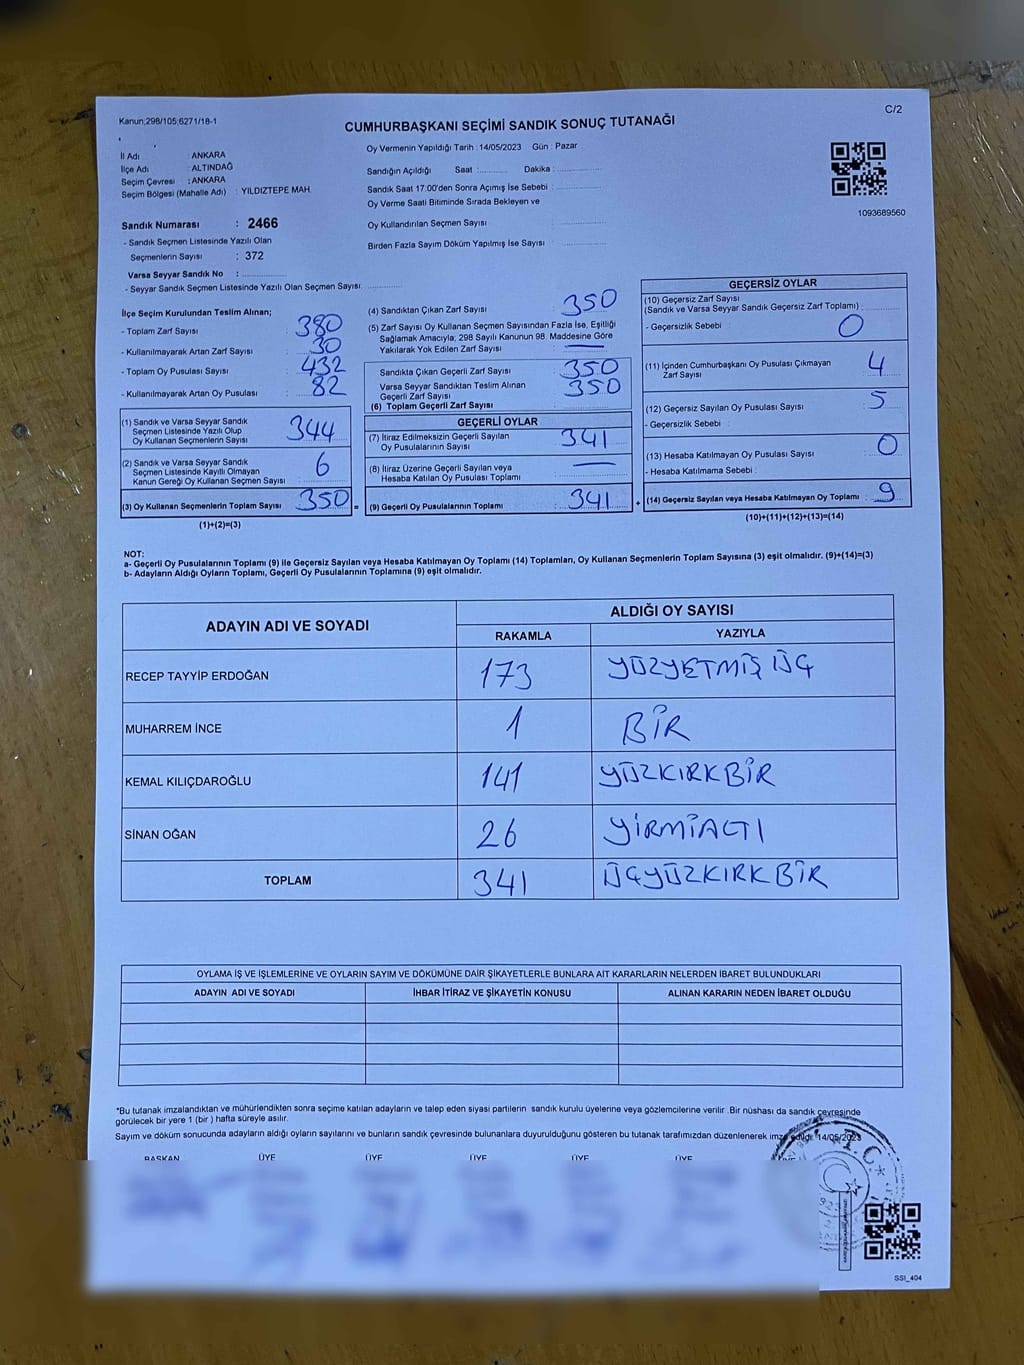 Kanun;298/105;6271/18-1
C/2
CUMHURBAŞKANI SEÇİMİ SANDIK SONUÇ TUTANAĞI
İl Adı : ANKARA
İlçe Adı : ALTINDAĞ
Seçim Çevresi : ANKARA
Seçim Bölgesi (Mahalle Adı) : YILDIZTEPE MAH.
Sandık Numarası : 2466
- Sandık Seçmen Listesinde Yazılı Olan
Seçmenlerin Sayısı : 372
Varsa Seyyar Sandık No :
- Seyyar Sandık Seçmen Listesinde Yazılı Olan Seçmen Sayısı:
Oy Vermenin Yapıldığı Tarih : 14/05/2023 Gün : Pazar
Sandığın Açıldığı Saat : Dakika :
Sandık Saat 17.00'den Sonra Açımış İse Sebebi :
Oy Verme Saati Bitiminde Sırada Bekleyen ve
Oy Kullandırılan Seçmen Sayısı :
Birden Fazla Sayım Döküm Yapılmış İse Sayısı :
1093689560
İlçe Seçim Kurulundan Teslim Alınan;
- Toplam Zarf Sayısı : 380
- Kullanılmayarak Artan Zarf Sayısı : 30
- Toplam Oy Pusulası Sayısı : 432
- Kullanılmayarak Artan Oy Pusulası : 82
(1) Sandık ve Varsa Seyyar Sandık
Seçmen Listesinde Yazılı Olup
Oy Kullanan Seçmenlerin Sayısı : 344
(2) Sandık ve Varsa Seyyar Sandık
Seçmen Listesinde Kayıtlı Olmayan
Kanun Gereği Oy Kullanan Seçmen Sayısı : 6
(3) Oy Kullanan Seçmenlerin Toplam Sayısı : 350 =
(1)+(2)=(3)
(4) Sandıktan Çıkan Zarf Sayısı : 350
(5) Zarf Sayısı Oy Kullanan Seçmen Sayısından Fazla İse, Eşitliği
Sağlamak Amacıyla; 298 Sayılı Kanunun 98. Maddesine Göre
Yakılarak Yok Edilen Zarf Sayısı : —
Sandıkta Çıkan Geçerli Zarf Sayısı : 350
Varsa Seyyar Sandıktan Teslim Alınan
Geçerli Zarf Sayısı : 350
(6) Toplam Geçerli Zarf Sayısı
GEÇERLİ OYLAR
(7) İtiraz Edilmeksizin Geçerli Sayılan
Oy Pusulalarının Sayısı : 341
(8) İtiraz Üzerine Geçerli Sayılan veya
Hesaba Katılan Oy Pusulası Toplamı : —
(9) Geçerli Oy Pusulalarının Toplamı : 341 +
GEÇERSİZ OYLAR
(10) Geçersiz Zarf Sayısı
(Sandık ve Varsa Seyyar Sandık Geçersiz Zarf Toplamı) :
- Geçersizlik Sebebi : 0
(11) İçinden Cumhurbaşkanı Oy Pusulası Çıkmayan
Zarf Sayısı : 4
(12) Geçersiz Sayılan Oy Pusulası Sayısı : 5
- Geçersizlik Sebebi :
(13) Hesaba Katılmayan Oy Pusulası Sayısı : 0
- Hesaba Katılmama Sebebi :
(14) Geçersiz Sayılan veya Hesaba Katılmayan Oy Toplamı : 9
(10)+(11)+(12)+(13)=(14)
NOT:
a- Geçerli Oy Pusulalarının Toplamı (9) ile Geçersiz Sayılan veya Hesaba Katılmayan Oy Toplamı (14) Toplamları, Oy Kullanan Seçmenlerin Toplam Sayısına (3) eşit olmalıdır. (9)+(14)=(3)
b- Adayların Aldığı Oyların Toplamı, Geçerli Oy Pusulalarının Toplamına (9) eşit olmalıdır.
ADAYIN ADI VE SOYADI
ALDIĞI OY SAYISI
RAKAMLA YAZIYLA
RECEP TAYYİP ERDOĞAN 173 YÜZYETMİŞ ÜÇ
MUHARREM İNCE 1 BİR
KEMAL KILIÇDAROĞLU 141 YÜZKIRKBİR
SİNAN OĞAN 26 YİRMİALTI
TOPLAM 341 ÜÇYÜZKIRKBİR
OYLAMA İŞ VE İŞLEMLERİNE VE OYLARIN SAYIM VE DÖKÜMÜNE DAİR ŞİKAYETLERLE BUNLARA AİT KARARLARIN NELERDEN İBARET BULUNDUKLARI
ADAYIN ADI VE SOYADI İHBAR İTİRAZ VE ŞİKAYETİN KONUSU ALINAN KARARIN NEDEN İBARET OLDUĞU
*Bu tutanak imzalandıktan ve mühürlendikten sonra seçime katılan adayların ve talep eden siyasi partilerin sandık kurulu üyelerine veya gözlemcilerine verilir. Bir nüshası da sandık çevresinde
görülecek bir yere 1 (bir) hafta süreyle asılır.
Sayım ve döküm sonucunda adayların aldığı oyların sayılarını ve bunların sandık çevresinde bulunanlara duyurulduğunu gösteren bu tutanak tarafımızdan düzenlenerek imza edildi. 14/05/2023
BAŞKAN ÜYE ÜYE ÜYE ÜYE ÜYE
T.C.
SSI_404